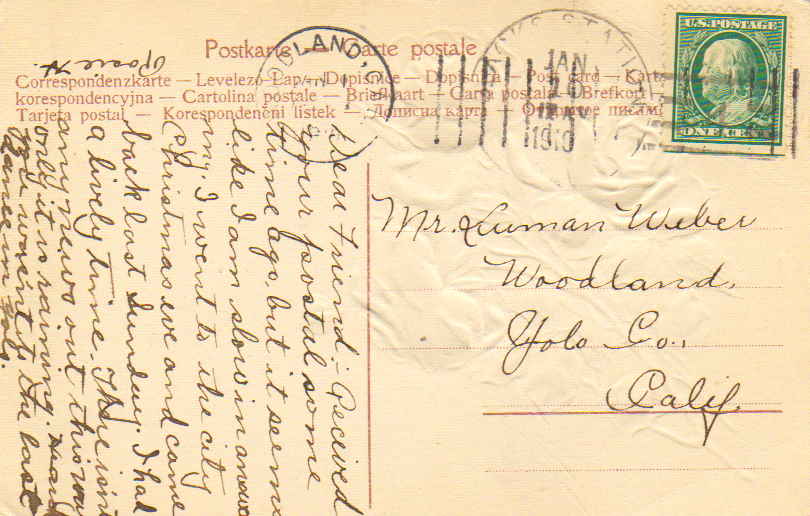 Postkarte — Carte postale
Correspondenzkarte — Levelező-Lap — Dopisnice — Dopisnica — Post card — Karta
korespondencyjna — Cartolina postale — Briefkaart — Carta postala — Brefkort
Tarjeta postal — Korespondenčni listek — Дописна карта — Открытое письмо
U.S. POSTAGE
ONE CENT
JAN
1910
STATION
DLAND,
Mr. Luman Weber
Woodland,
Yolo Co.,
Calif.
Dear Friend: Recived
your postal some
time ago, but it seems
like I am slow in answer
ing. I went to the city
Christmas eve and came
back last Sunday. I had
a lively time. There isn't
any news out this way
only it is raining. Heard
you weren't to the last
dance in
Rosie H.